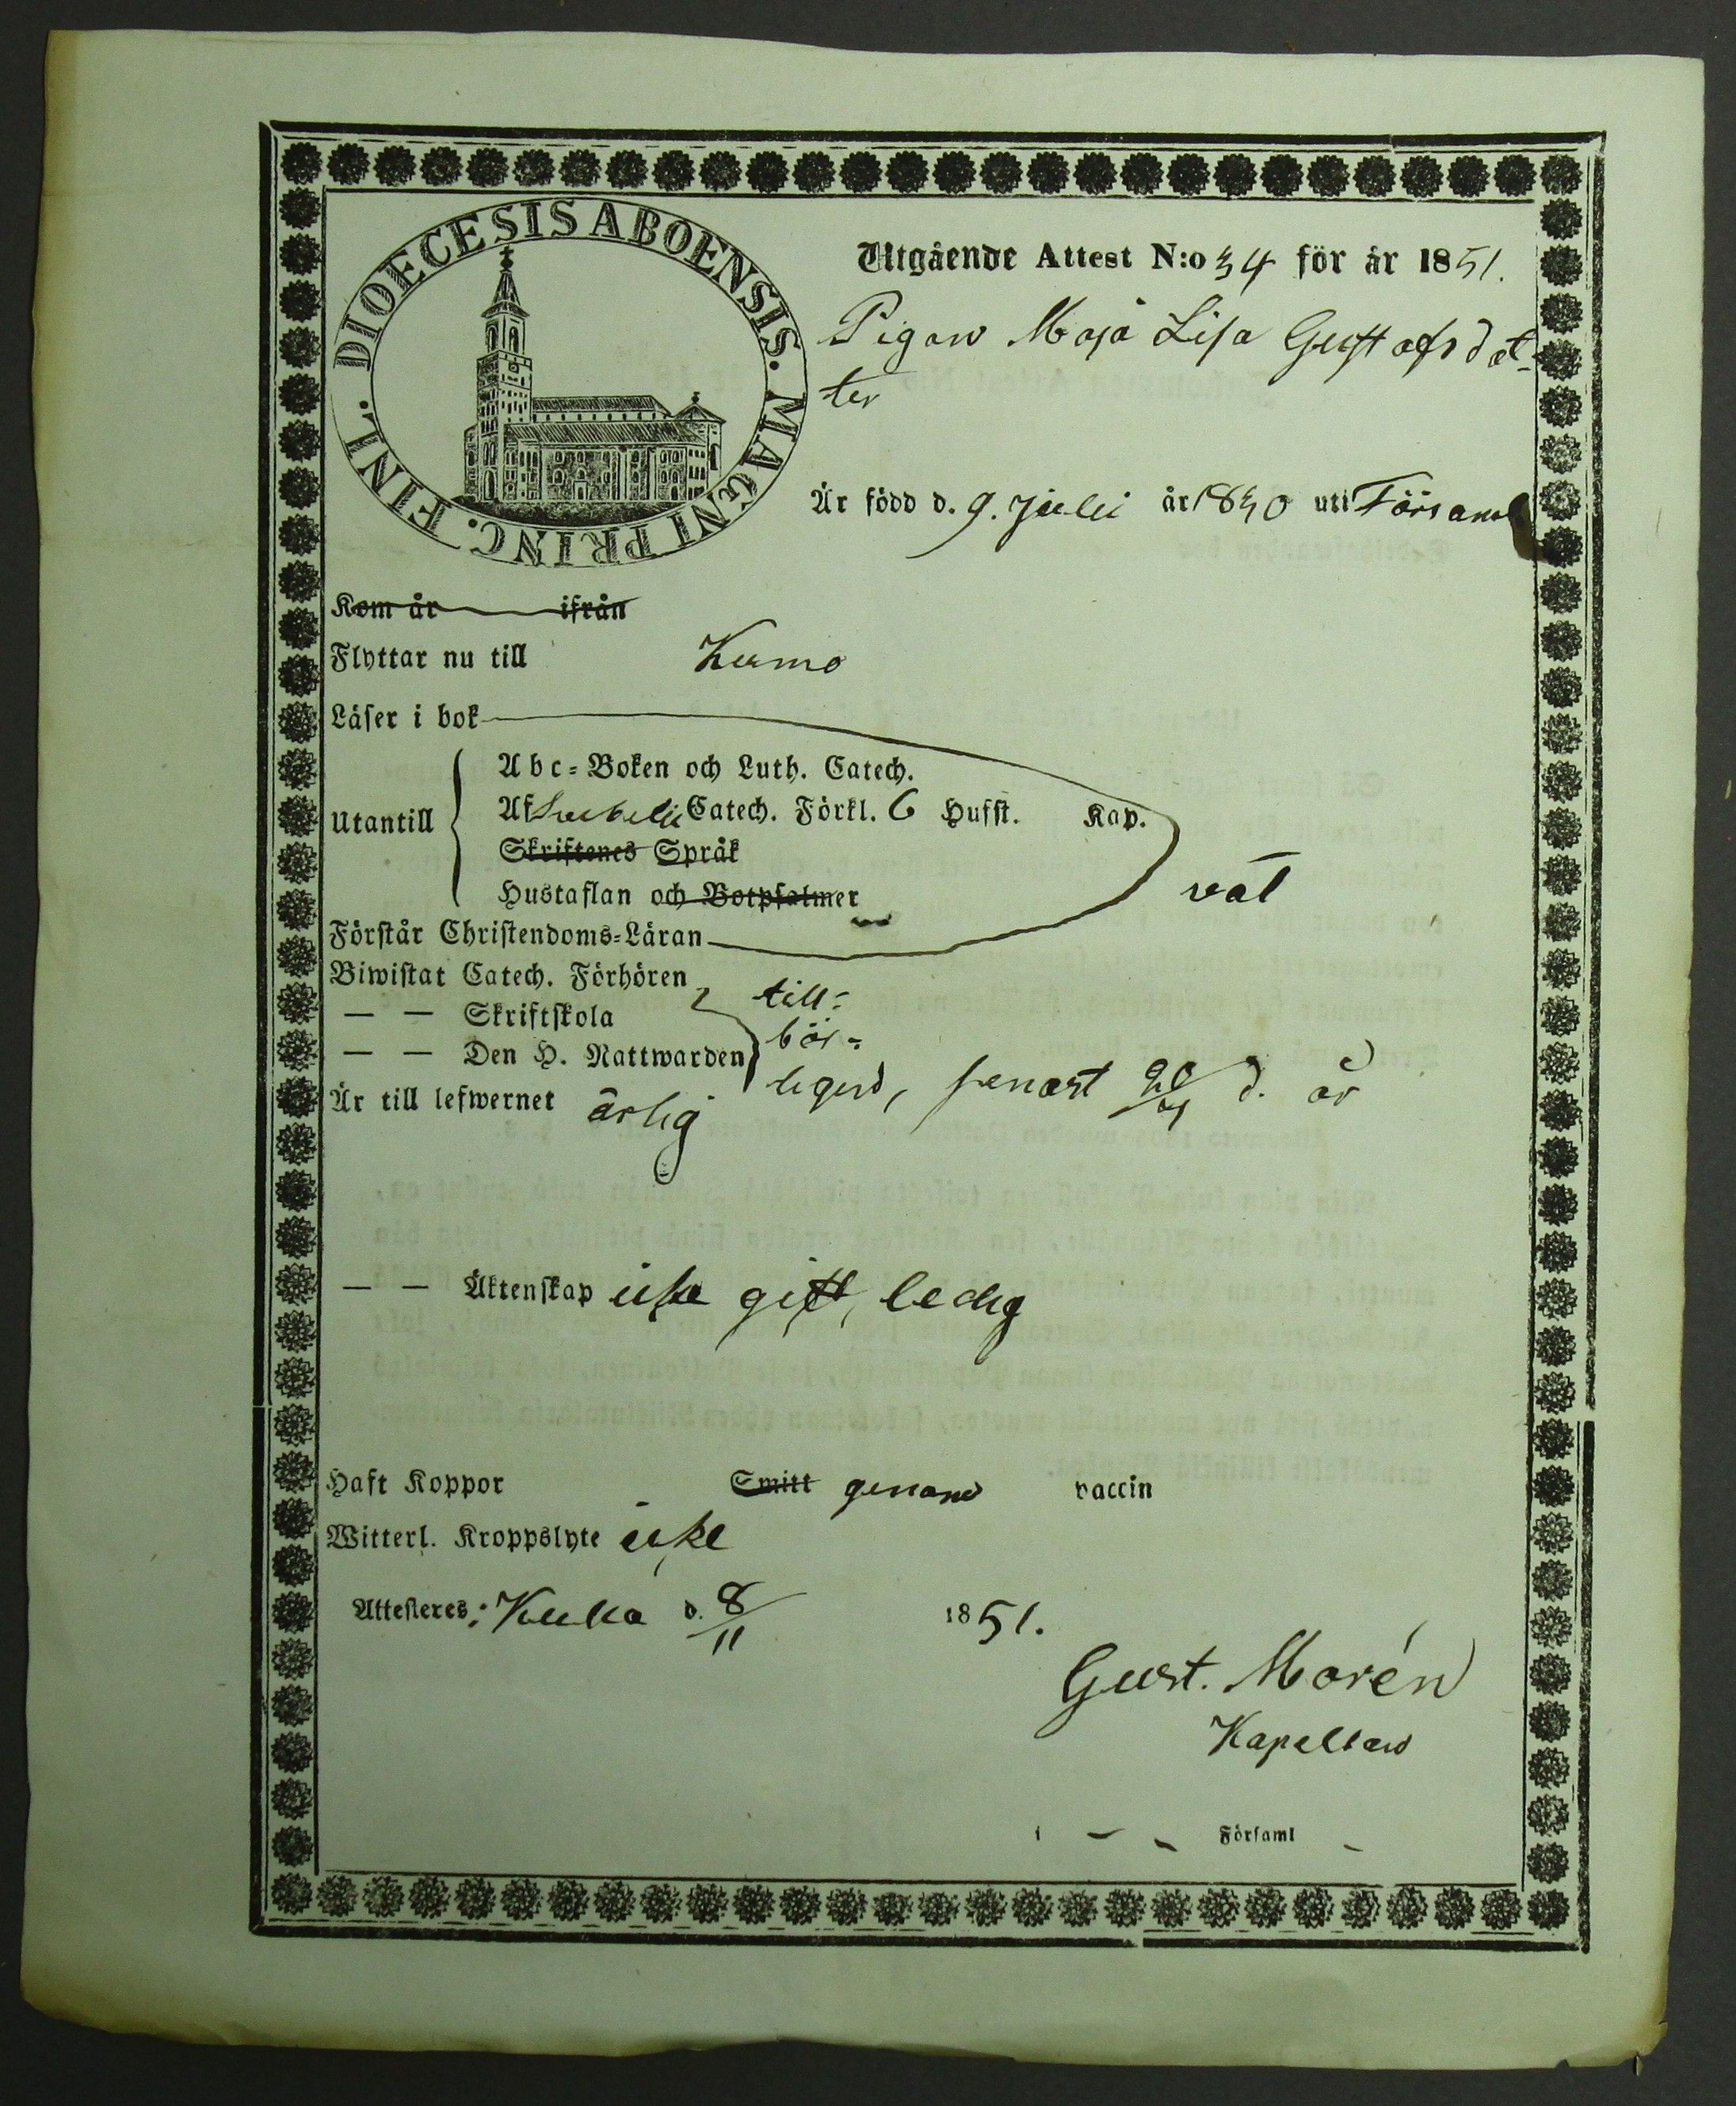 DIOECESIS ABOENSIS. MAGNI PRINC. FINL.
Utgående Attest N:o 34 för år 1851.
Pigan Maja Lisa Gustafsdot-
ter
Är född d. 9. Juli år 1830 uti Församl
Kom år ifrån
Flyttar nu till Kumo
Läser i bok
Utantill
Abc-Boken och Luth. Catech.
Af Svebelii Catech. Förkl. 6 Hufst. Kap.
Skriftenes Språk
Hustaflan och Botpsalmer
väl
Förstår Christendoms-Läran
Biwistat Catech. Förhören
— — Skriftskola
— — Den H. Nattwarden
till-
bör-
ligen, senast d. år
Är till lefwernet ärlig
— — Äktenskap icke gift, ledig
Haft Koppor Smitt genom vaccin
Witterl. Kroppslyte icke
Attesteres: Kulla d. 8/11 1851.
Gust. Morén
Kapellan
i Församl